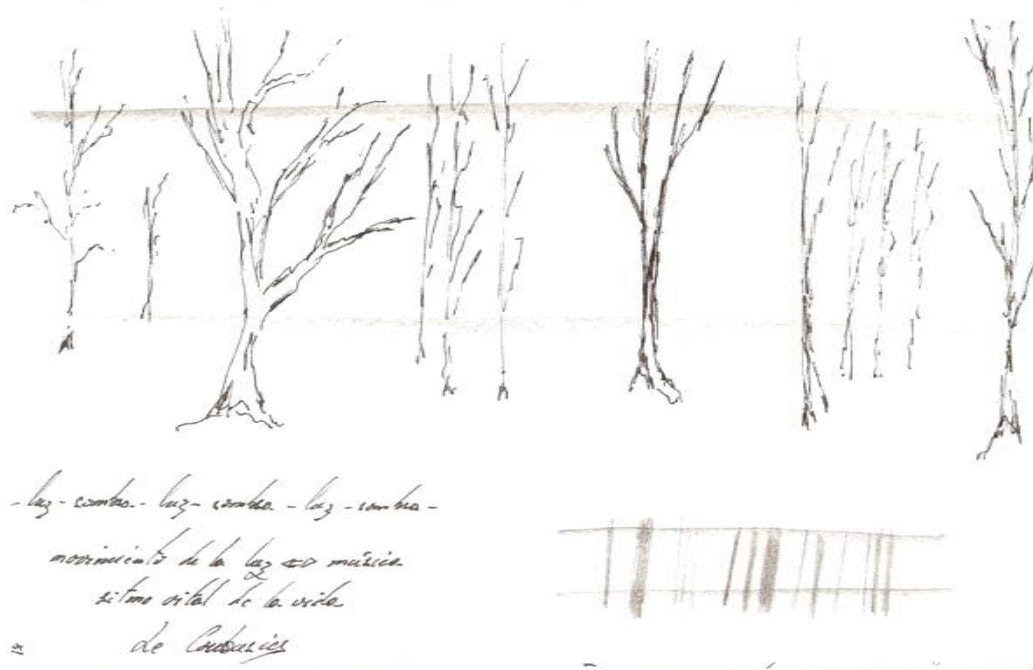 - luz - sombra - luz - sombra - luz - sombra -
movimiento de la luz ⇔ música
ritmo vital de la vida
de